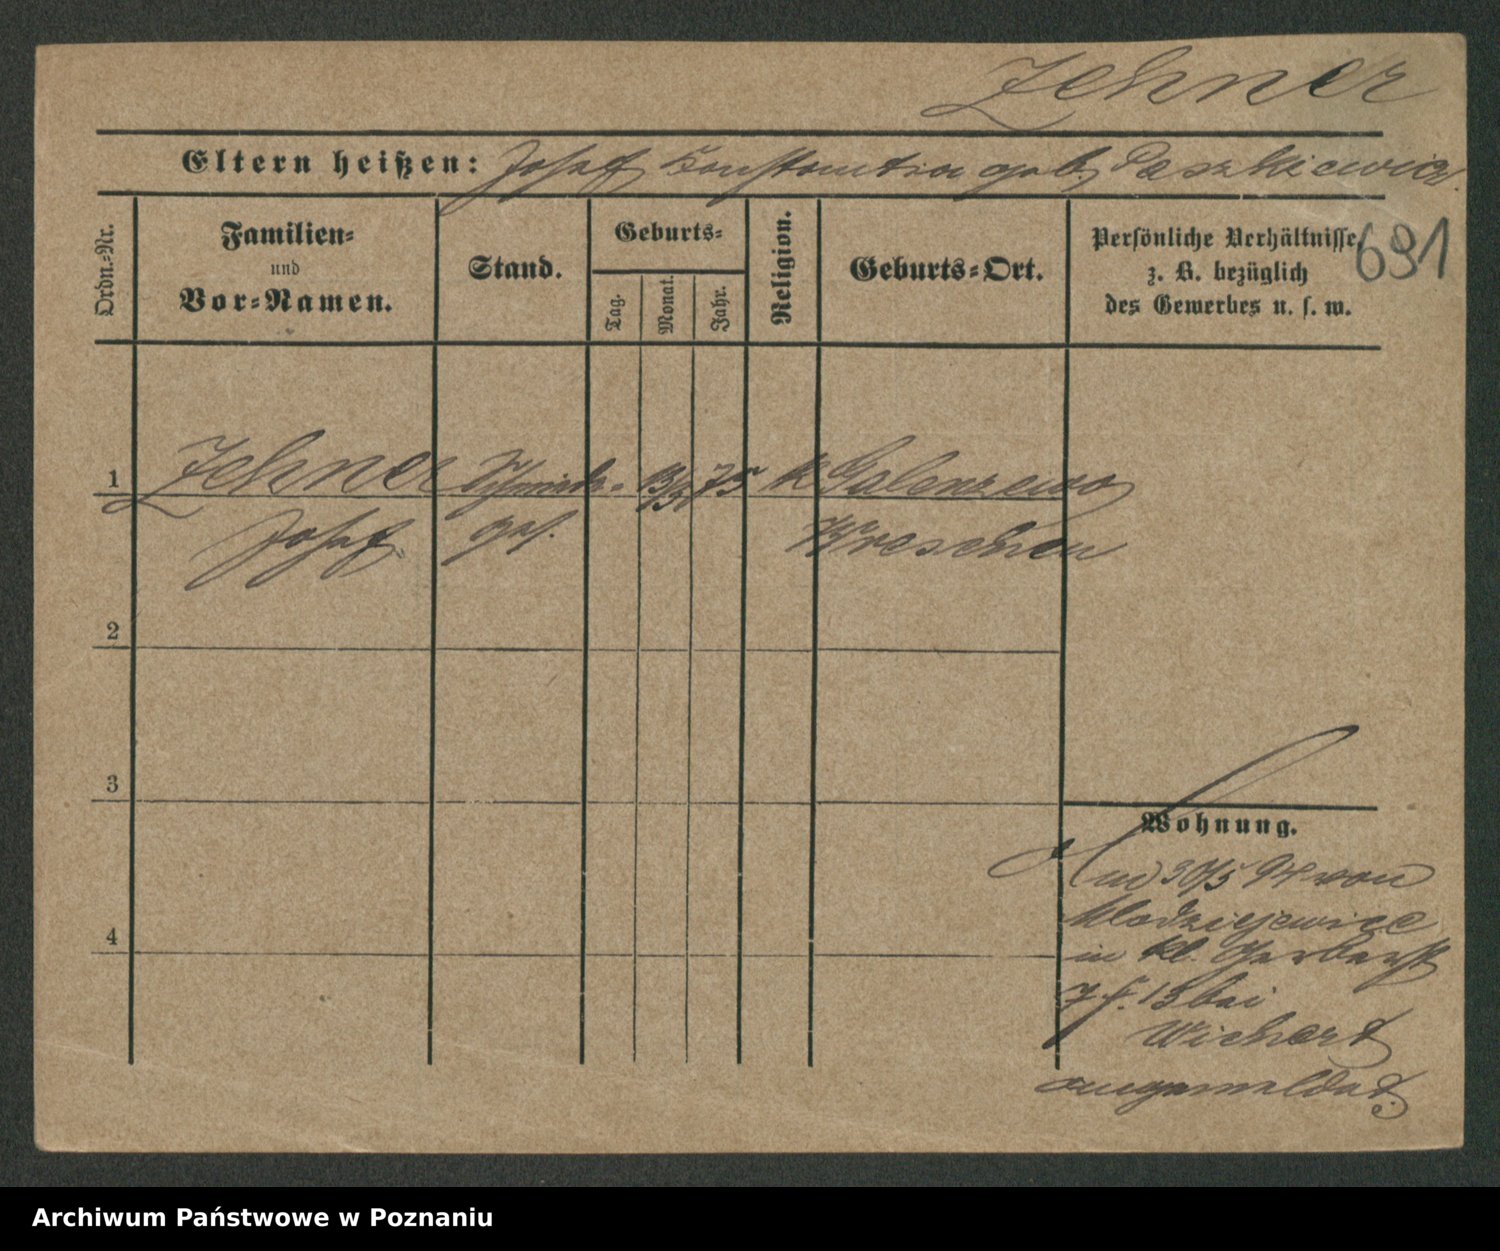 Zehner
Eltern heißen: Josef Konstantia geb. Paszkiewicz.
Ordn.-Nr.
Familien-
und
Vor-Namen.
Stand.
Geburts-
Tag.
Monat.
Jahr.
Religion.
Geburts-Ort.
Persönliche Verhältnisse
z. B. bezüglich
des Gewerbes u. s. w.
691
1 Zehner Schmiede- 75 k
Josef ges. Wreschen
2
3
4
Wohnung.
30/5 94 von
in kl. Gerberstr
7 f. 13 bei
Wichert
angemeldet.
Archiwum Państwowe w Poznaniu